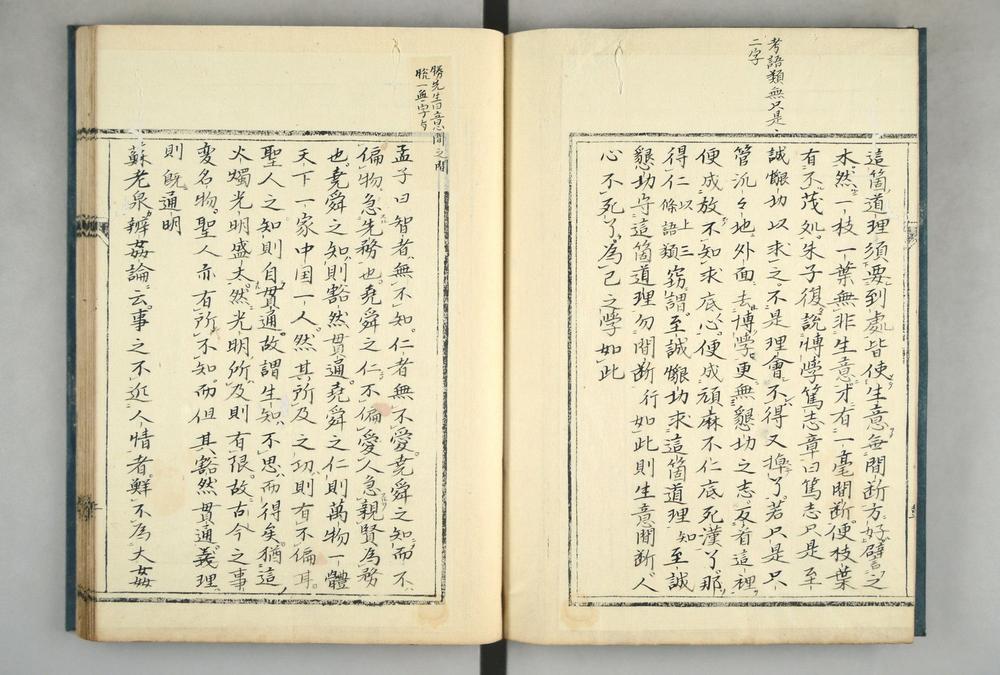 考語類無只是
二字
這箇道理須要到處皆使生意無間断方好譬之
木然一枝一葉無非生意才有一毫間断便枝葉
有不茂処朱子復說博学篤志章曰篤志只是至
誠懇切以求之不是理會不得又掉了若只是只
管汎々地外面去博學更無懇切之志反看這裡
便成放不知求底心便成頑麻不仁底死漢了那
得仁以上三條語類窃謂至誠懇切求這箇道理知至誠
懇切守這箇道理勿間断行如此則生意間断人
心不死了為己之学如此
勝先生曰意間之間
脱一無字
孟子曰智者無不知仁者無不愛堯舜之知而不
偏物急先務也堯舜之仁不偏愛人急親賢為務
也堯舜之知則豁然貫通堯舜之仁則萬物一體
天下一家中国一人然其所及之功則有不偏耳
聖人之知則自貫通故謂生知不思而得矣猶這
火燭光明盛大然光明所及則有限故古今之事
変名物聖人亦有所不知而但其豁然貫通義理
則既通明
蘇老泉辨姦論云事之不近人情者鮮不為大姦